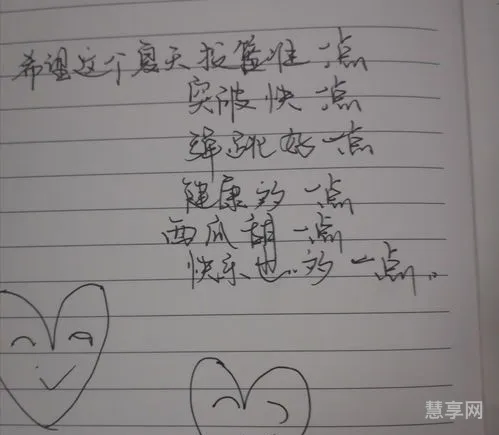 希望这个夏天投篮准一点
突破快一点
弹跳好一点
健康多一点
西瓜甜一点
快乐也多一点。
慧享网